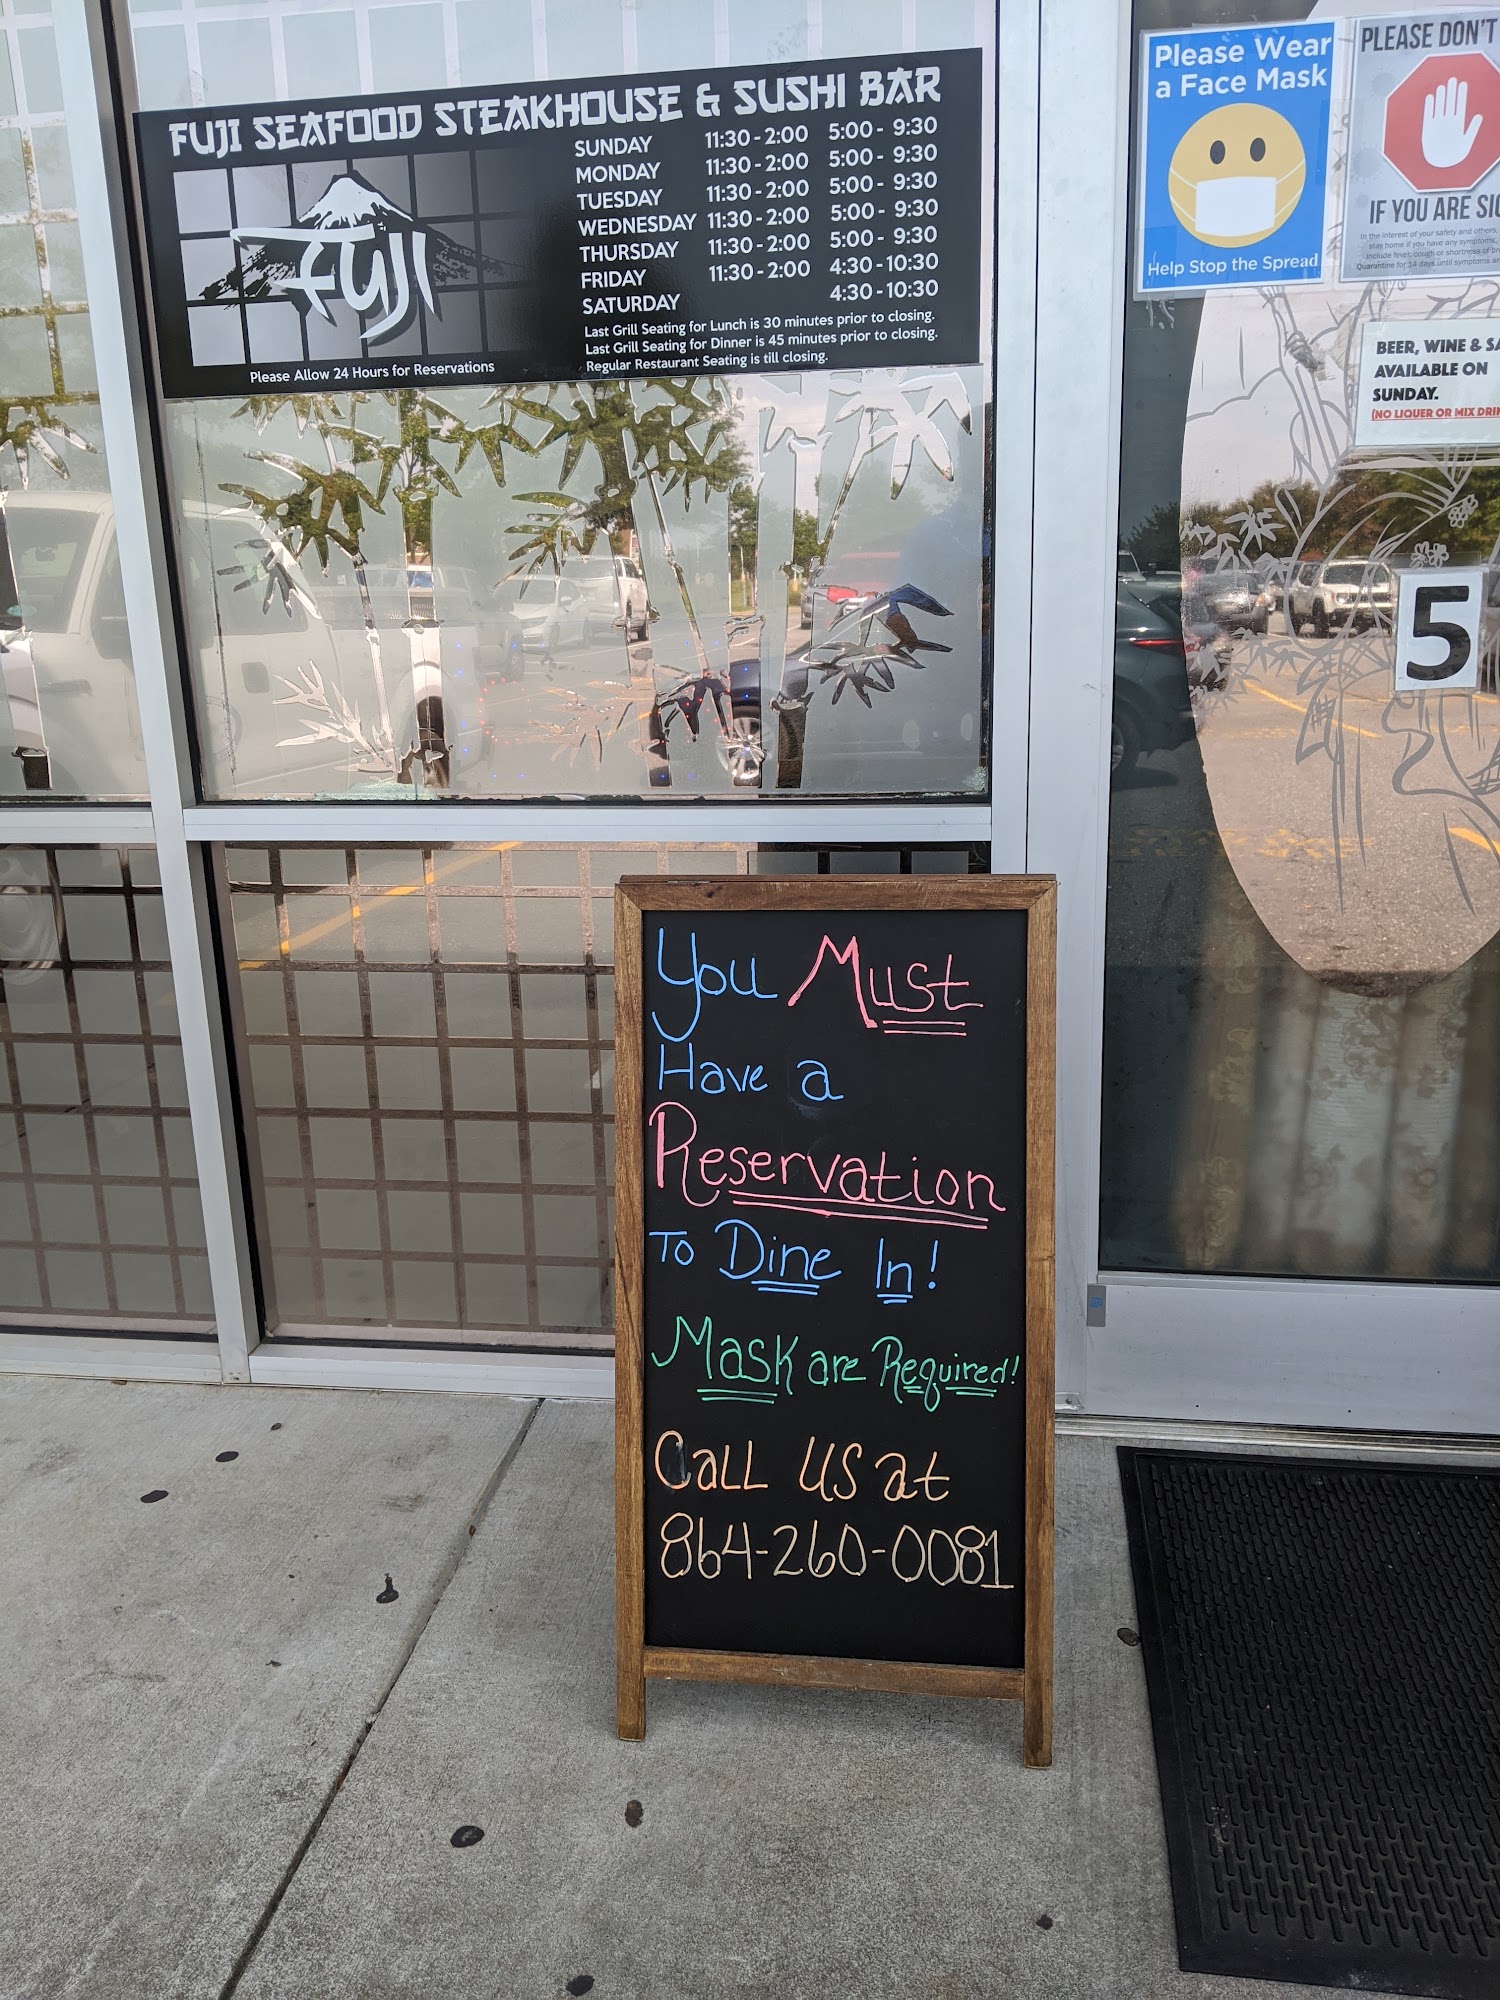 FUJI SEAFOOD STEAKHOUSE & SUSHI BAR
SUNDAY 11:30-2:00 5:00- 9:30
MONDAY 11:30-2:00 5:00- 9:30
TUESDAY 11:30-2:00 5:00- 9:30
WEDNESDAY 11:30-2:00 5:00- 9:30
THURSDAY 11:30-2:00 5:00- 9:30
FRIDAY 11:30-2:00 4:30-10:30
SATURDAY 4:30-10:30
Last Grill Seating for Lunch is 30 minutes prior to closing.
Last Grill Seating for Dinner is 45 minutes prior to closing.
Regular Restaurant Seating is till closing.
FUJI
Please Allow 24 Hours for Reservations
Please Wear
a Face Mask
Help Stop the Spread
PLEASE DON'T
IF YOU ARE
In the interest of your safety and others,
stay home if you have any symptoms,
include fever, cough or shortness of
Quarantine for 14 days until symptoms
BEER, WINE &
AVAILABLE ON
SUNDAY.
(NO LIQUER OR MIX
5
You Must
Have a
Reservation
To Dine In!
Mask are Required!
Call us at
864-260-0081